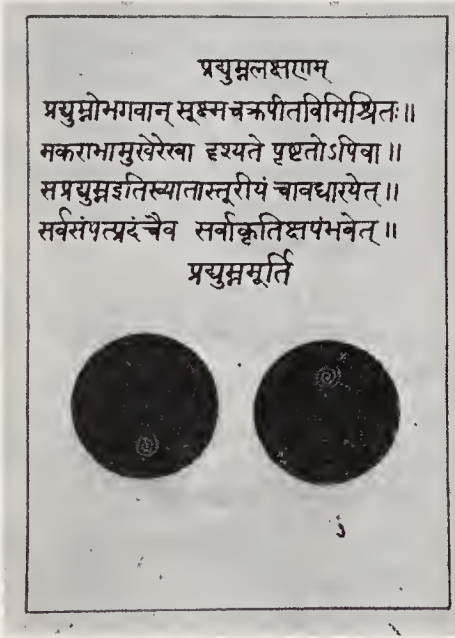 प्रद्युम्नलक्षणम्
प्रद्युम्नोभगवान् सूक्ष्मचक्रपीतविमिश्रितः॥
मकराभामुखेरेखा दृश्यते पृष्टतोऽपिवा॥
सप्रद्युम्नइतिख्यातास्तूरीयं चावधारयेत्॥
सर्वसंपत्प्रदंचैव सर्वाकृतिक्षपंभवेत्॥
प्रद्युम्नमूर्ति